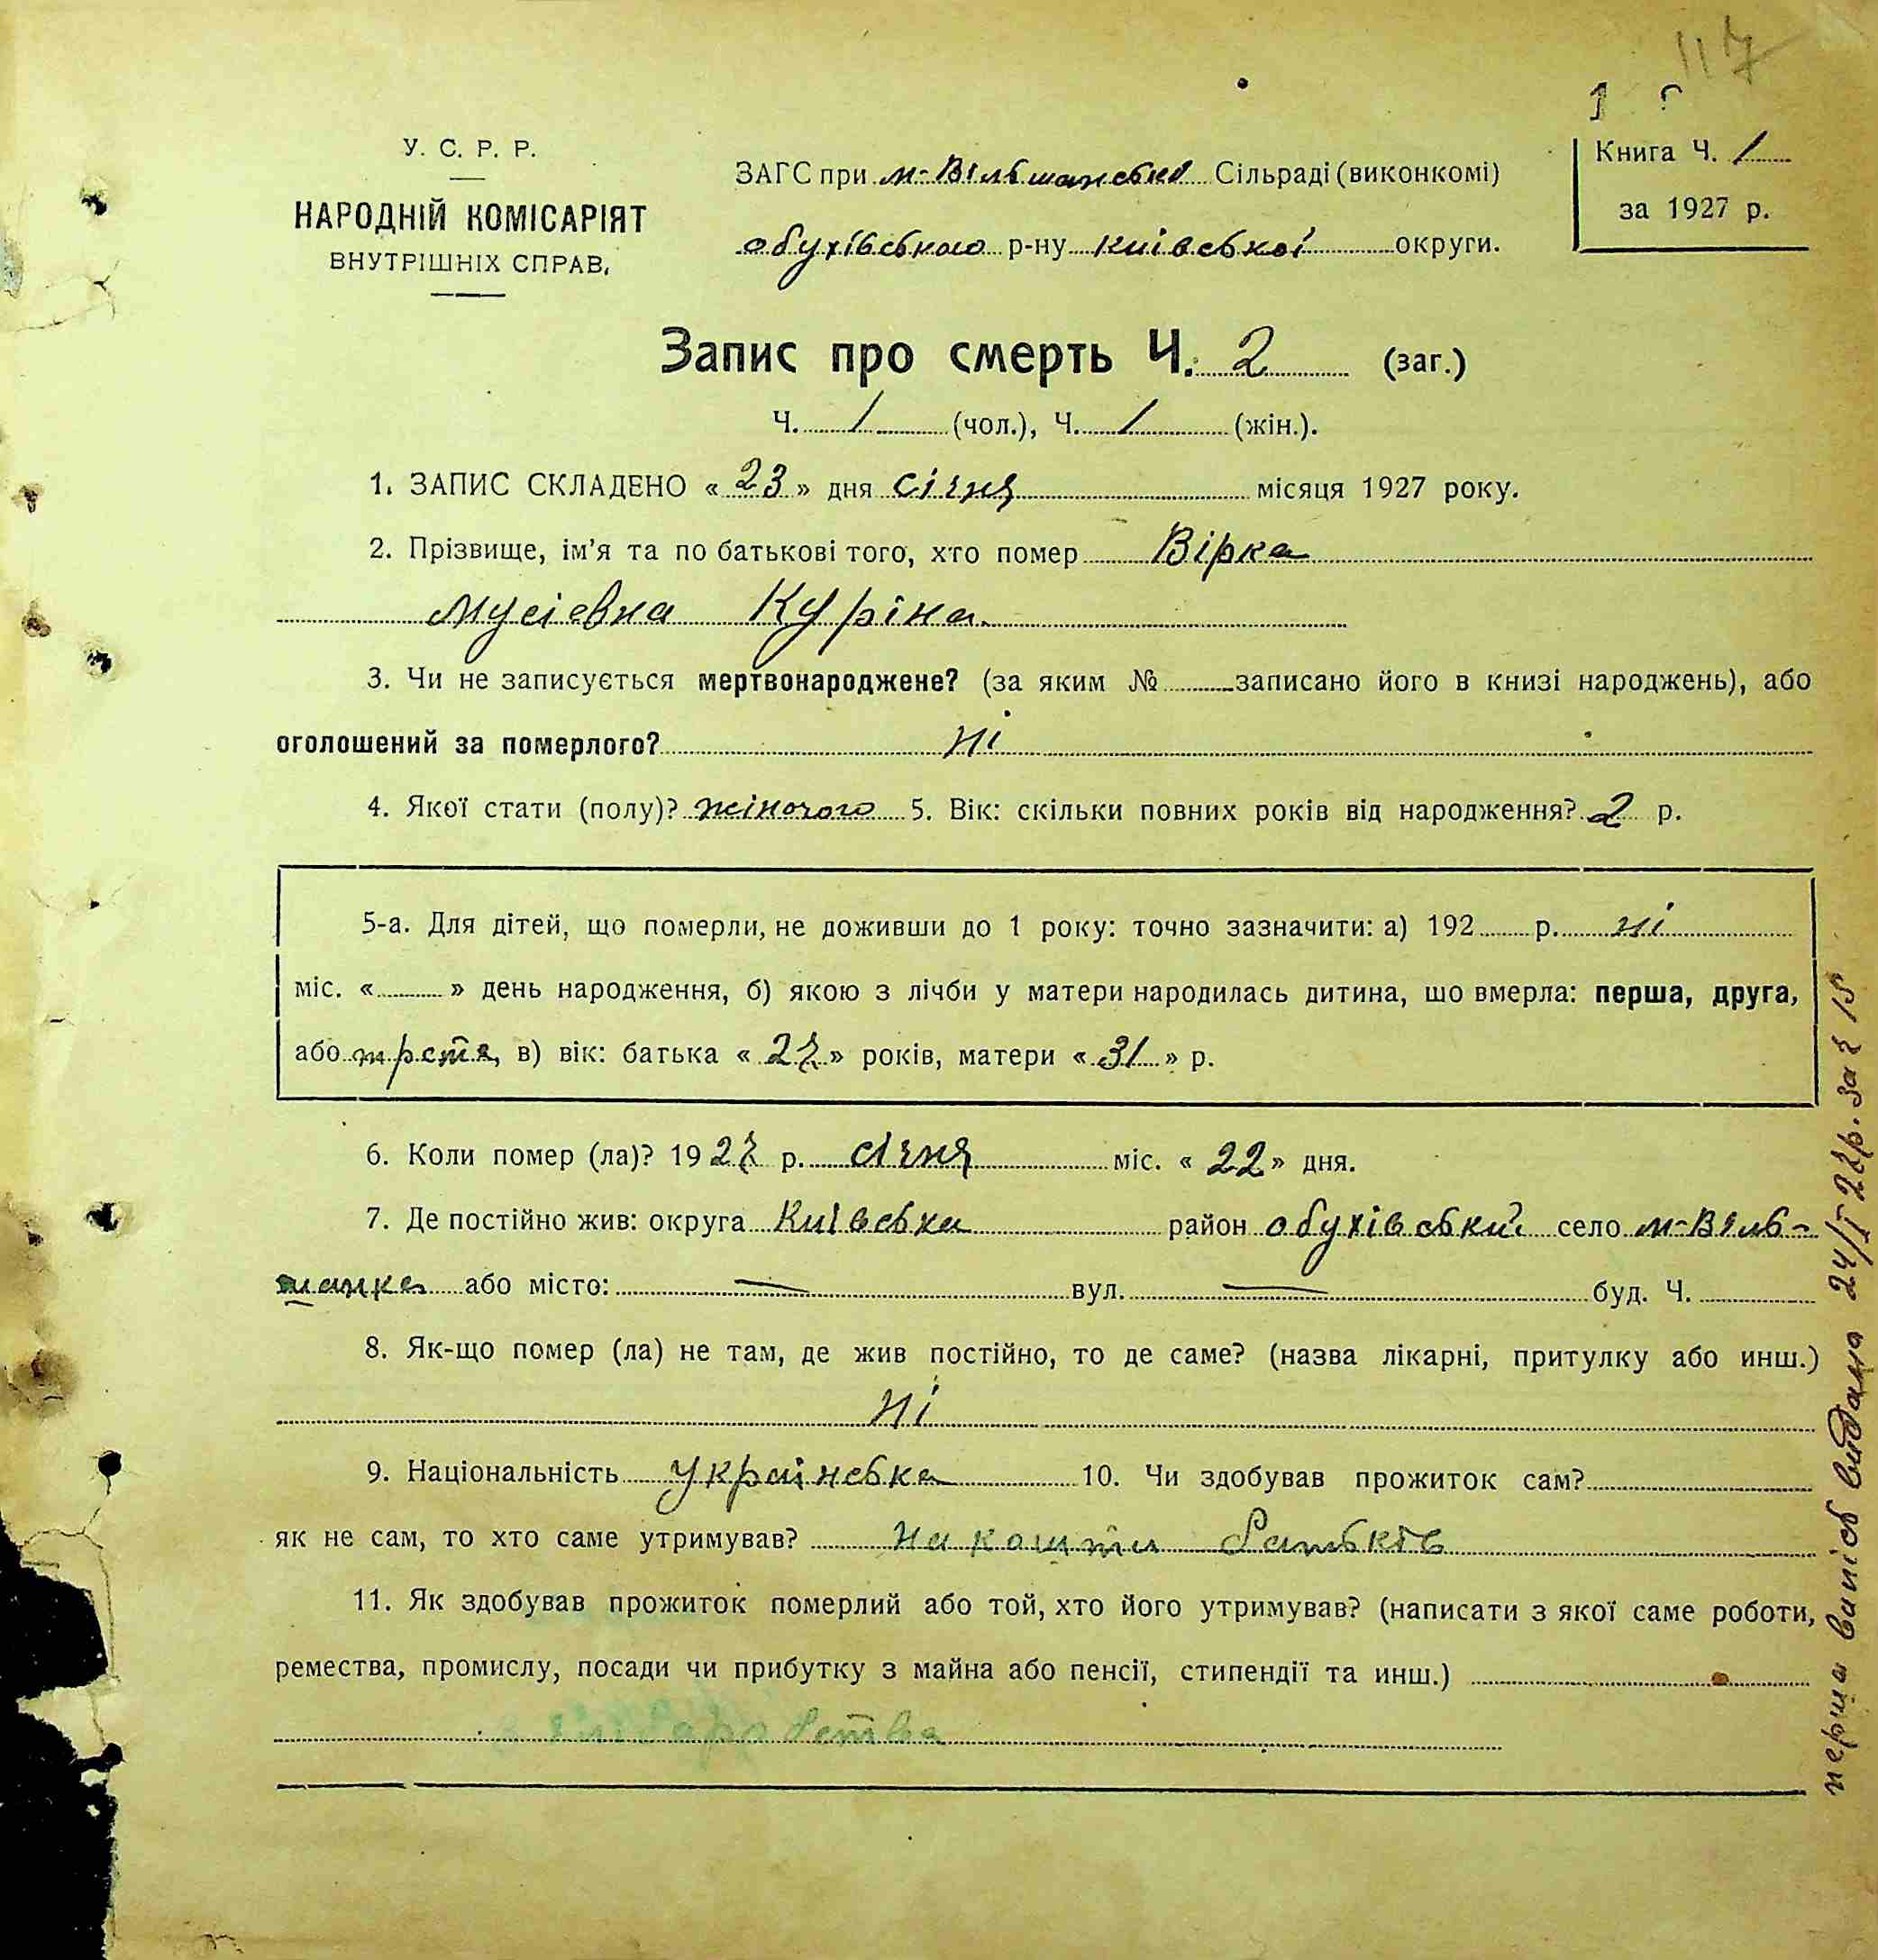 117
У. С. Р. Р.
НАРОДНІЙ КОМІСАРІЯТ
ВНУТРІШНІХ СПРАВ.
ЗАГС при м-Вільшанській Сільраді (виконкомі)
обухівського р-ну київської округи.
Книга Ч. 1
за 1927 р.
Запис про смерть Ч. 2 (заг.)
Ч. 1 (чол.), Ч. 1 (жін.).
1. ЗАПИС СКЛАДЕНО « 23 » дня січня місяця 1927 року.
2. Прізвище, ім'я та по батькові того, хто помер Вірка
Мусіевна Куріна.
3. Чи не записується мертвонароджене? (за яким № записано його в книзі народжень), або
оголошений за померлого? ні
4. Якої стати (полу)? жіночого 5. Вік: скільки повних років від народження? 2 р.
5-а. Для дітей, що померли, не доживши до 1 року: точно зазначити: а) 192 р. ні
міс. « » день народження, б) якою з лічби у матери народилась дитина, шо вмерла: перша, друга,
або третя, в) вік: батька « 27 » років, матери « 31 » р.
6. Коли помер (ла)? 1927 р. січня міс. « 22 » дня.
7. Де постійно жив: округа Київська район обухівський село м-Віль-
шанка або місто: — вул. — буд. Ч.
8. Як-що помер (ла) не там, де жив постійно, то де саме? (назва лікарні, притулку або инш.)
ні
9. Національність українська 10. Чи здобував прожиток сам?
як не сам, то хто саме утримував? на кошти батьків
11. Як здобував прожиток померлий або той, хто його утримував? (написати з якої саме роботи,
ремества, промислу, посади чи прибутку з майна або пенсії, стипендії та инш.)
з хліборобства
перша випісь видана 24/I 27р. за № 15